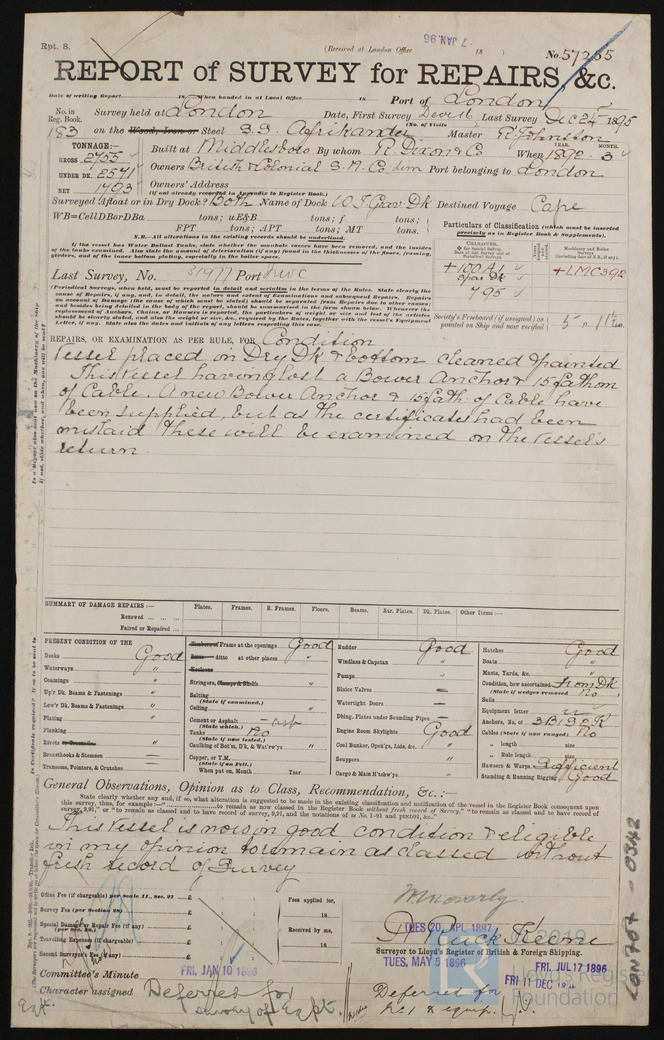 Rpt. 8.
(Received at London Office
7 JAN. 96
18
No. 57255
REPORT of SURVEY for REPAIRS, &c.
Date of writing Report 18 When handed in at Local Office 18 Port of London
No. in Reg. Book. Survey held at London Date, First Survey Dec 16 Last Survey Dec 24th 1895
(No. of Visits
183 on the Wood, Iron or Steel S.S. Afrikander Master R. Johnston
TONNAGE:—
GROSS 2755
UNDER DK. 2571
NET 1793
Built at Middlesbro By whom R. Dixon & Co When 1892 . 3
YEAR. MONTH.
Owners British & Colonial S. N. Co. Lim Port belonging to London
Owners' Address
(if not already recorded in Appendix to Register Book.)
Surveyed Afloat or in Dry Dock? Both Name of Dock W I Grav. Dk Destined Voyage Cape
WB=CellDBorDBa tons; uE&B tons; f tons;
FPT tons; APT tons; MT tons.
N.B.—All alterations in the existing records should be underlined.
If the vessel has Water Ballast Tanks, state whether the manhole covers have been removed, and the insides of the tanks examined. Also state the amount of deterioration (if any) found in the thicknesses of the floors, framing, girders, and of the inner bottom plating, especially in the boiler space.
Particulars of Classification (which must be inserted precisely as in Register Book & Supplements).
CHARACTER.
+100A1
Spar Dk
7 95
Machinery and Boiler Surveys
+LMC 3,92
Last Survey, No. 31977 Port NWC
(Periodical Surveys, when held, must be reported in detail and seriatim in the terms of the Rules. State clearly the cause of Repairs, if any, and, in detail, the nature and extent of Examinations and subsequent Repairs. Repairs on account of Damage (the cause of which must be stated) should be separated from Repairs due to other causes; and besides being detailed in the body of the report, should be summarized in the form shown below. Whenever the replacement of Anchors, Chains, or Hawsers is reported, the particulars of weight or size and test of the articles should be clearly stated, and also the weight or size, &c., required by the Rules, together with the vessel's Equipment Letter, if any. State also the dates and initials of any letters respecting this case.
Society's Freeboard (if assigned) as painted on Ship and now verified
REPAIRS, OR EXAMINATION AS PER RULE, FOR Condition
Vessel placed on Dry Dk & bottom cleaned & painted
This Vessel having lost a Bower Anchor & 15 fathom
of Cable. A new Bower Anchor & 15 fath. of Cable have
been supplied, but as the certificates had been
mislaid these will be examined on the vessel's
return.
SUMMARY OF DAMAGE REPAIRS:— Plates. Frames. R. Frames. Floors. Beams. Str. Plates. Dk. Plates. Other Items:—
Renewed ... ... ...
Faired or Repaired ...
PRESENT CONDITION OF THE
Decks Good
Waterways "
Coamings "
Up'r Dk. Beams & Fastenings "
Low'r Dk. Beams & Fastenings "
Plating "
Planking —
Rivets "
Breasthooks & Stemson —
Transoms, Pointers, & Crutches —
Frame at the openings Good
ditto at other places "
Stringers, "
Salting
(State if examined.)
Ceiling "
Cement or Asphalt
(State which.)
Tanks No
(State if now tested.)
Caulking of Bott'm, D'k, & Wat'rw'ys "
Copper, or Y.M.
(State if on Felt.)
When put on, Month Year
Rudder Good
Windlass & Capstan "
Pumps "
Sluice Valves —
Watertight Doors —
Dblng. Plates under Sounding Pipes —
Engine Room Skylights Good
Coal Bunker, Open'gs, Lids, &c. "
Scuppers "
Cargo & Main H'tchw'ys "
Hatches Good
Boats "
Masts, Yards, &c. "
Condition, how ascertained From Dk
(State if wedges removed No
Sails
Equipment letter
Anchors, No. of 3B 1S 2K
Cables (State if now ranged) No
" length size
" Rule length size
Hawsers & Warps Sufficient
Standing & Running Rigging Good
General Observations, Opinion as to Class, Recommendation, &c.:—
State clearly whether any, and if so, what alteration is suggested to be made in the existing classification and notification of the vessel in the Register Book consequent upon
This Vessel is now in good condition & eligible
in my opinion to remain as classed without
fresh record of Survey
Office Fee (if chargeable) per Scale II., Sec. 27 ... £
Survey Fee (per Section 28) ... £
Special Damage or Repair Fee (if any) (per Sec. 28.) ... £
Travelling Expenses (if chargeable) ... £
Second Surveyor's Fee (if any) ... £
Fees applied for,
18
Received by me,
18
TUES 20 APL 1897
P. Ruck Keene
Surveyor to Lloyd's Register of British & Foreign Shipping.
Committee's Minute
FRI, JAN 10 1896
TUES, MAY 5 1896
FRI. JUL 17 1896
FRI 11 DEC 1896
Character assigned Deferred for
survey of Eqpt.
Deferred for
& equip.
Eqpt.
LON 707 - 0342
2019
Lloyd's Register
Foundation